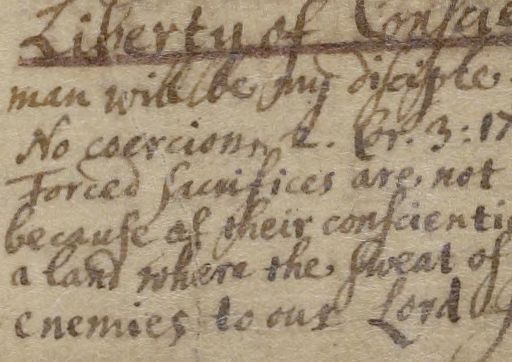 Liberty of Conscie
man will be my disciple.
No coercion, 2. Cor. 3:17
Forced sacrifices are not
because of their conscienti
a land where the sweat of
enemies to our Lord